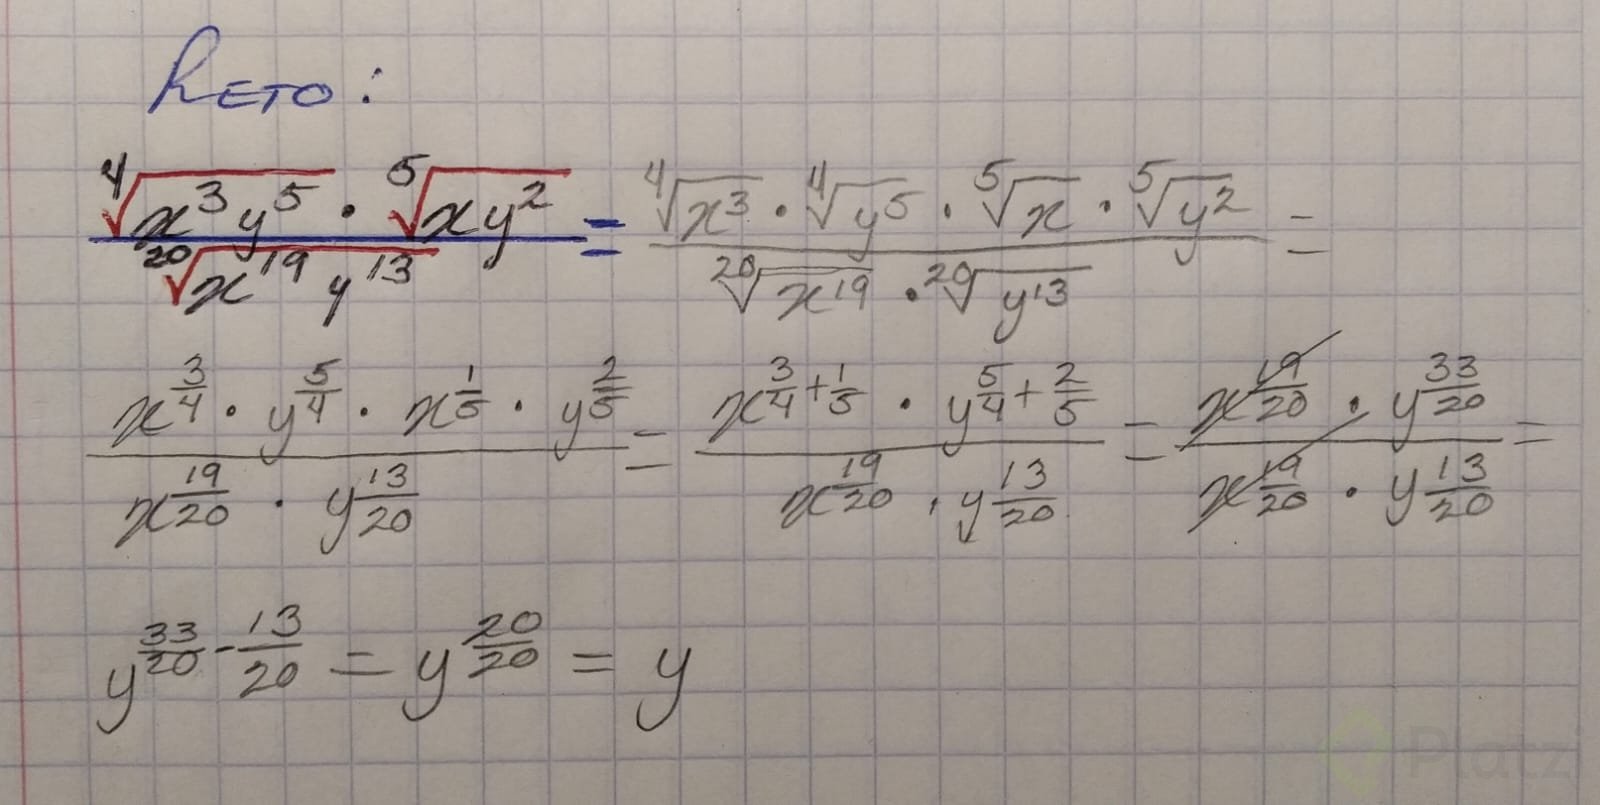 Reto:
⁴√(x³y⁵) · ⁵√(xy²) / ²⁰√(x¹⁹y¹³) = ⁴√(x³) · ⁴√(y⁵) · ⁵√(x) · ⁵√(y²) / ²⁰√(x¹⁹) · ²⁰√(y¹³) =
x^(3/4) · y^(5/4) · x^(1/5) · y^(2/5) / x^(19/20) · y^(13/20) = x^(3/4 + 1/5) · y^(5/4 + 2/5) / x^(19/20) · y^(13/20) = x^(19/20) · y^(33/20) / x^(19/20) · y^(13/20) =
y^(33/20 - 13/20) = y^(20/20) = y
Platzi